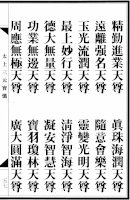 精勤進業天尊　真珠海潤天尊
遠離強名天尊　隨意樂天尊
玉光流潤天尊　靈變光明天尊
最上妙行天尊　清淨智海天尊
大德無量天尊　凝安智慧天尊
功業無邊天尊　寶羽瓊林天尊
周應無極天尊　廣大圓滿天尊
太上三元寶懺